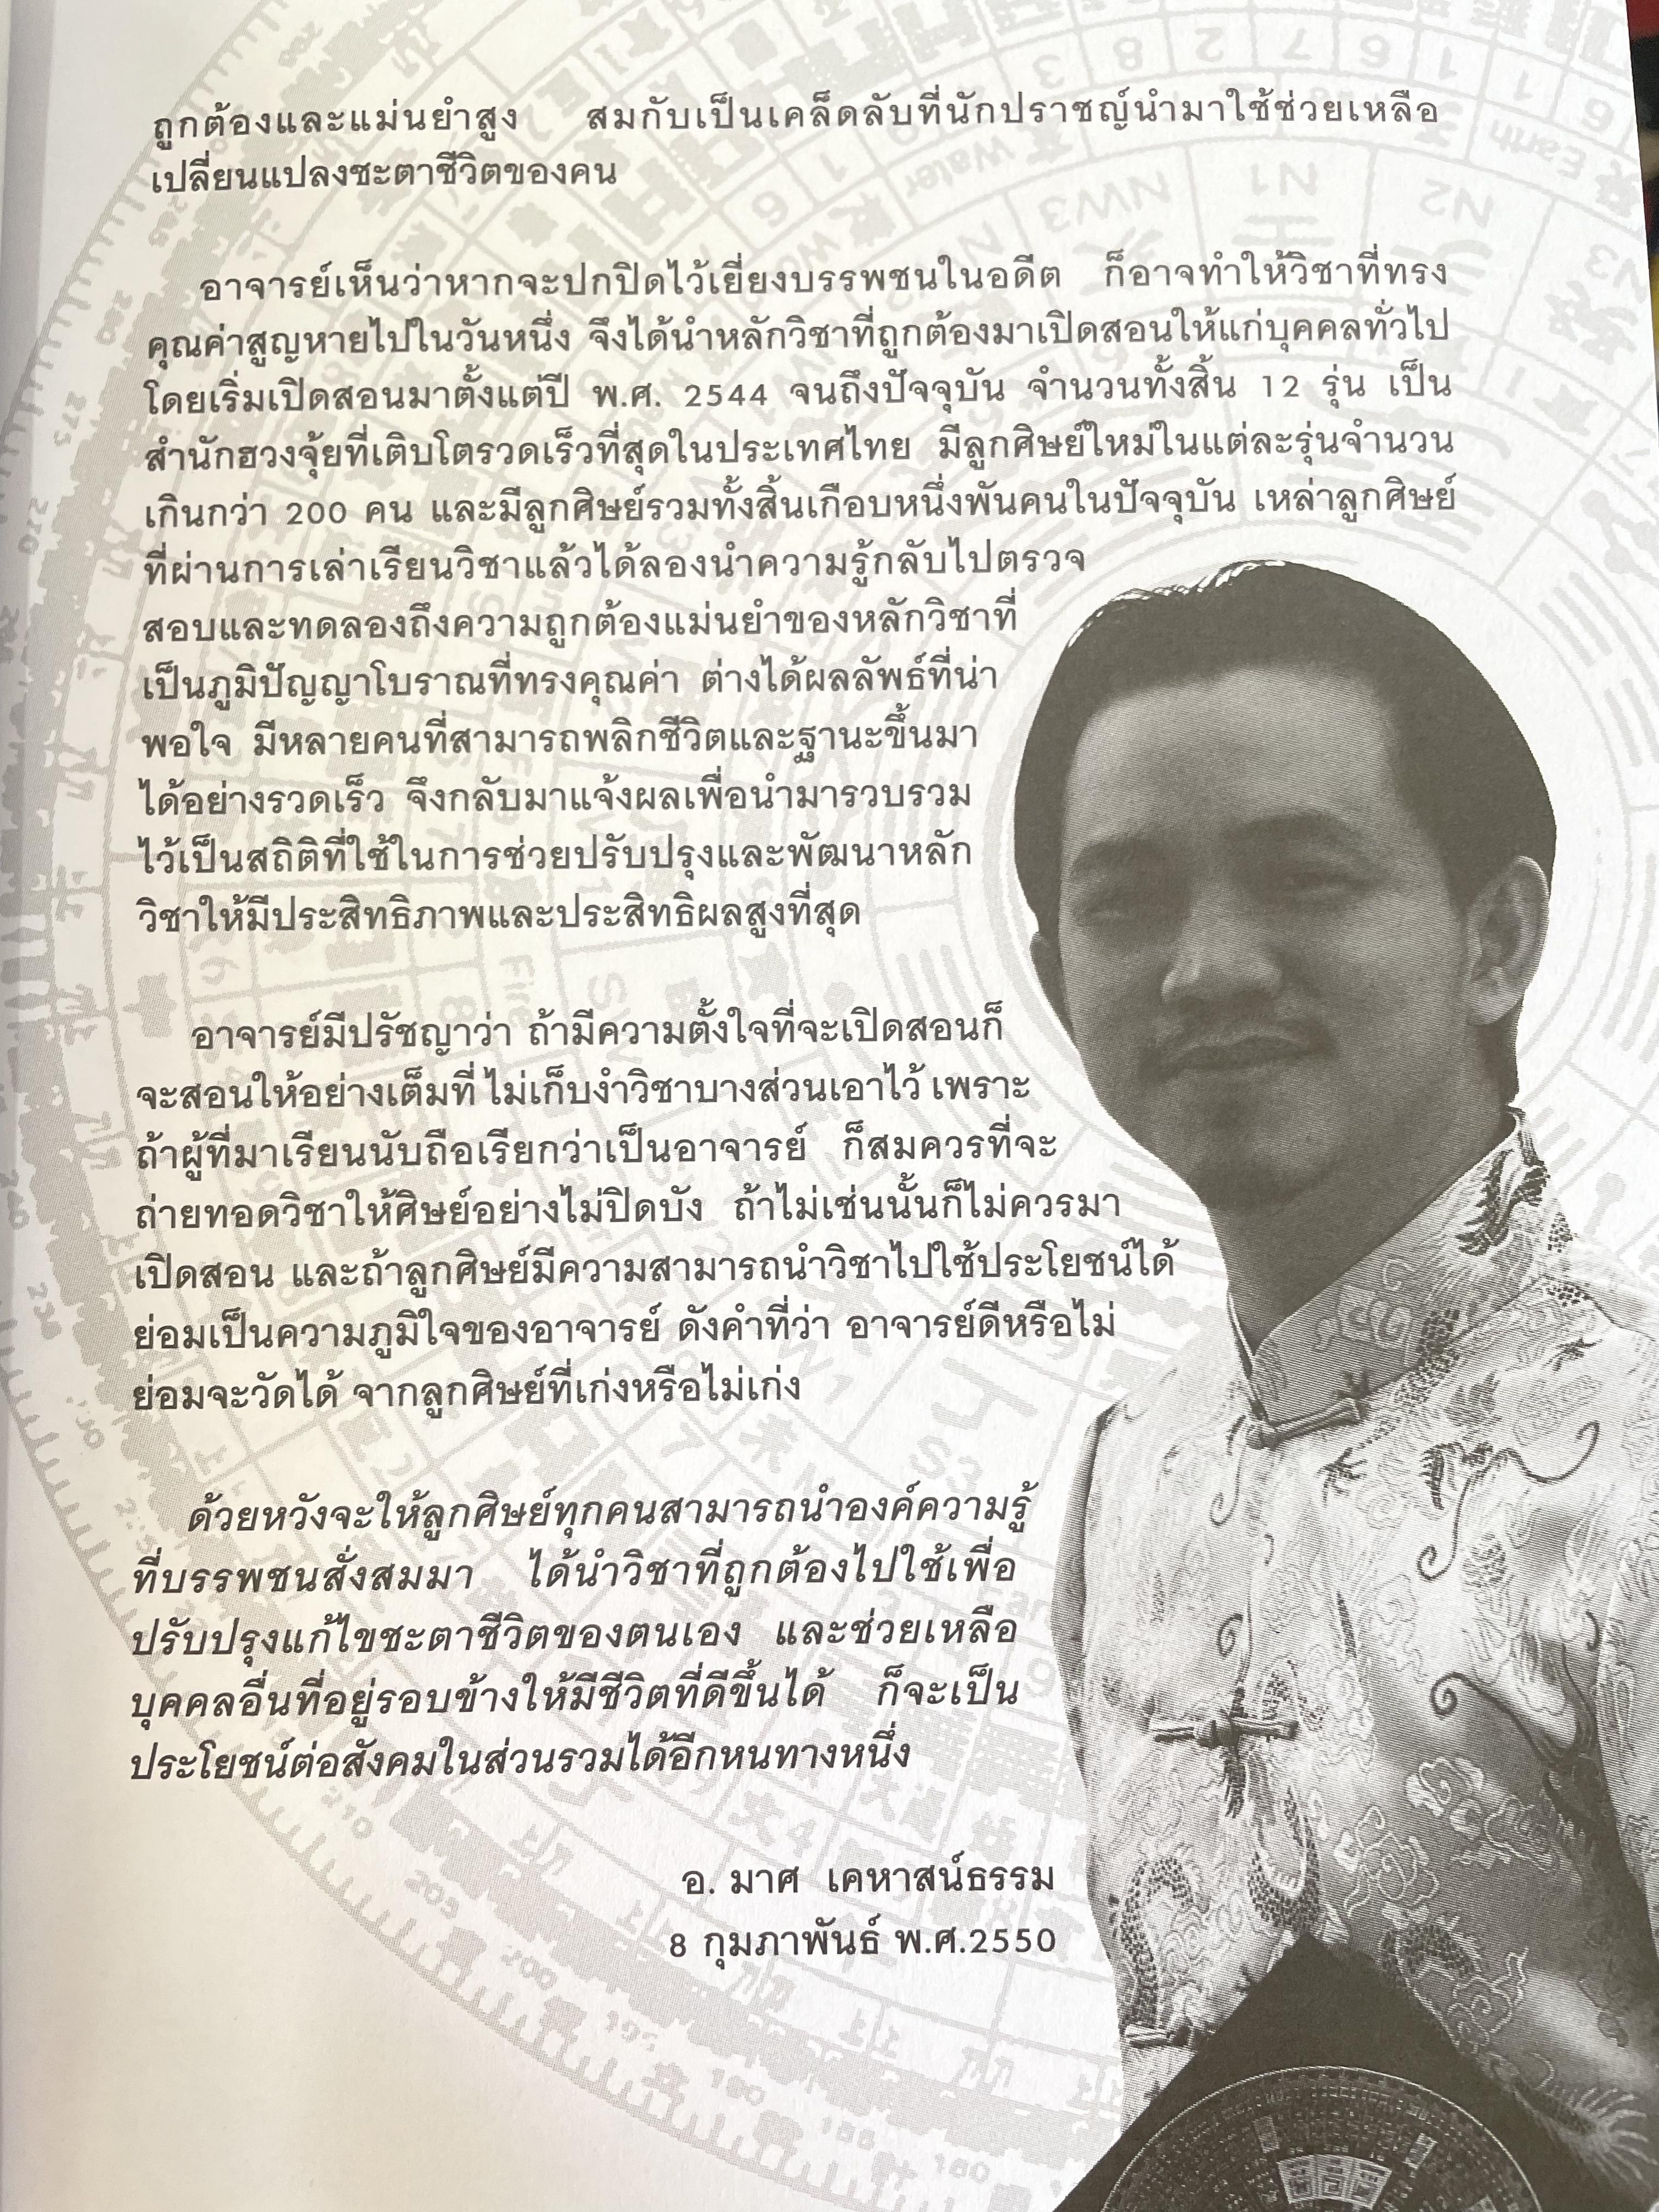 ถูกต้องและแม่นยำสูง สมกับเป็นเคล็ดลับที่นักปราชญ์นำมาใช้ช่วยเหลือ
เปลี่ยนแปลงชะตาชีวิตของคน
อาจารย์เห็นว่าหากจะปกปิดไว้เยี่ยงบรรพชนในอดีต ก็อาจทำให้วิชาที่ทรง
คุณค่าสูญหายไปในวันหนึ่ง จึงได้นำหลักวิชาที่ถูกต้องมาเปิดสอนให้แก่บุคคลทั่วไป
โดยเริ่มเปิดสอนมาตั้งแต่ปี พ.ศ. 2544 จนถึงปัจจุบัน จำนวนทั้งสิ้น 12 รุ่น เป็น
สำนักฮวงจุ้ยที่เติบโตรวดเร็วที่สุดในประเทศไทย มีลูกศิษย์ใหม่ในแต่ละรุ่นจำนวน
เกินกว่า 200 คน และมีลูกศิษย์รวมทั้งสิ้นเกือบหนึ่งพันคนในปัจจุบัน เหล่าลูกศิษย์
ที่ผ่านการเล่าเรียนวิชาแล้วได้ลองนำความรู้กลับไปตรวจ
สอบและทดลองถึงความถูกต้องแม่นยำของหลักวิชาที่
เป็นภูมิปัญญาโบราณที่ทรงคุณค่า ต่างได้ผลลัพธ์ที่น่า
พอใจ มีหลายคนที่สามารถพลิกชีวิตและฐานะขึ้นมา
ได้อย่างรวดเร็ว จึงกลับมาแจ้งผลเพื่อนำมารวบรวม
ไว้เป็นสถิติที่ใช้ในการช่วยปรับปรุงและพัฒนาหลัก
วิชาให้มีประสิทธิภาพและประสิทธิผลสูงที่สุด
อาจารย์มีปรัชญาว่า ถ้ามีความตั้งใจที่จะเปิดสอนก็
จะสอนให้อย่างเต็มที่ ไม่เก็บงำวิชาบางส่วนเอาไว้ เพราะ
ถ้าผู้ที่มาเรียนนับถือเรียกว่าเป็นอาจารย์ ก็สมควรที่จะ
ถ่ายทอดวิชาให้ศิษย์อย่างไม่ปิดบัง ถ้าไม่เช่นนั้นก็ไม่ควรมา
เปิดสอน และถ้าลูกศิษย์มีความสามารถนำวิชาไปใช้ประโยชน์ได้
ย่อมเป็นความภูมิใจของอาจารย์ ดังคำที่ว่า อาจารย์ดีหรือไม่
ย่อมจะวัดได้ จากลูกศิษย์ที่เก่งหรือไม่เก่ง
ด้วยหวังจะให้ลูกศิษย์ทุกคนสามารถนำองค์ความรู้
ที่บรรพชนสั่งสมมา ได้นำวิชาที่ถูกต้องไปใช้เพื่อ
ปรับปรุงแก้ไขชะตาชีวิตของตนเอง และช่วยเหลือ
บุคคลอื่นที่อยู่รอบข้างให้มีชีวิตที่ดีขึ้นได้ ก็จะเป็น
ประโยชน์ต่อสังคมในส่วนรวมได้อีกหนทางหนึ่ง
อ. มาศ เคหาสน์ธรรม
8 กุมภาพันธ์ พ.ศ.2550